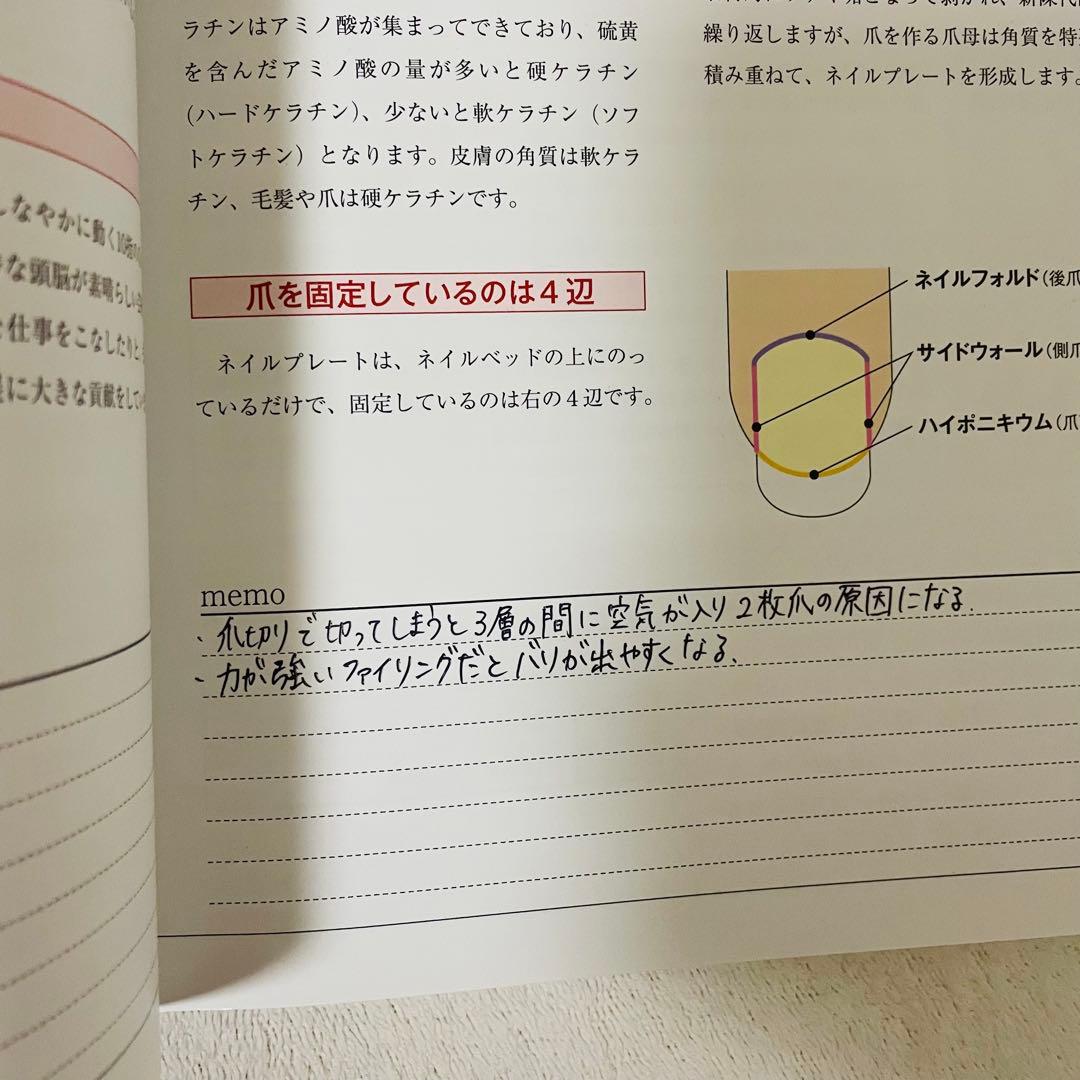 しなやかに動く10指の
な頭脳が素晴らしい
仕事をこなしたりと
に大きな貢献をして
ラチンはアミノ酸が集まってできており、硫黄
を含んだアミノ酸の量が多いと硬ケラチン
(ハードケラチン)、少ないと軟ケラチン（ソフ
トケラチン）となります。皮膚の角質は軟ケラ
チン、毛髪や爪は硬ケラチンです。
爪を固定しているのは４辺
ネイルプレートは、ネイルベッドの上にのっ
ているだけで、固定しているのは右の４辺です。
繰り返しますが、爪を作る爪母は角質を特
積み重ねて、ネイルプレートを形成します。
ネイルフォルド（後爪
サイドウォール（側爪
ハイポニキウム（爪
memo
・爪切りで切ってしまうと3層の間に空気が入り2枚爪の原因になる.
・力が強いファイリングだとバリが出やすくなる.